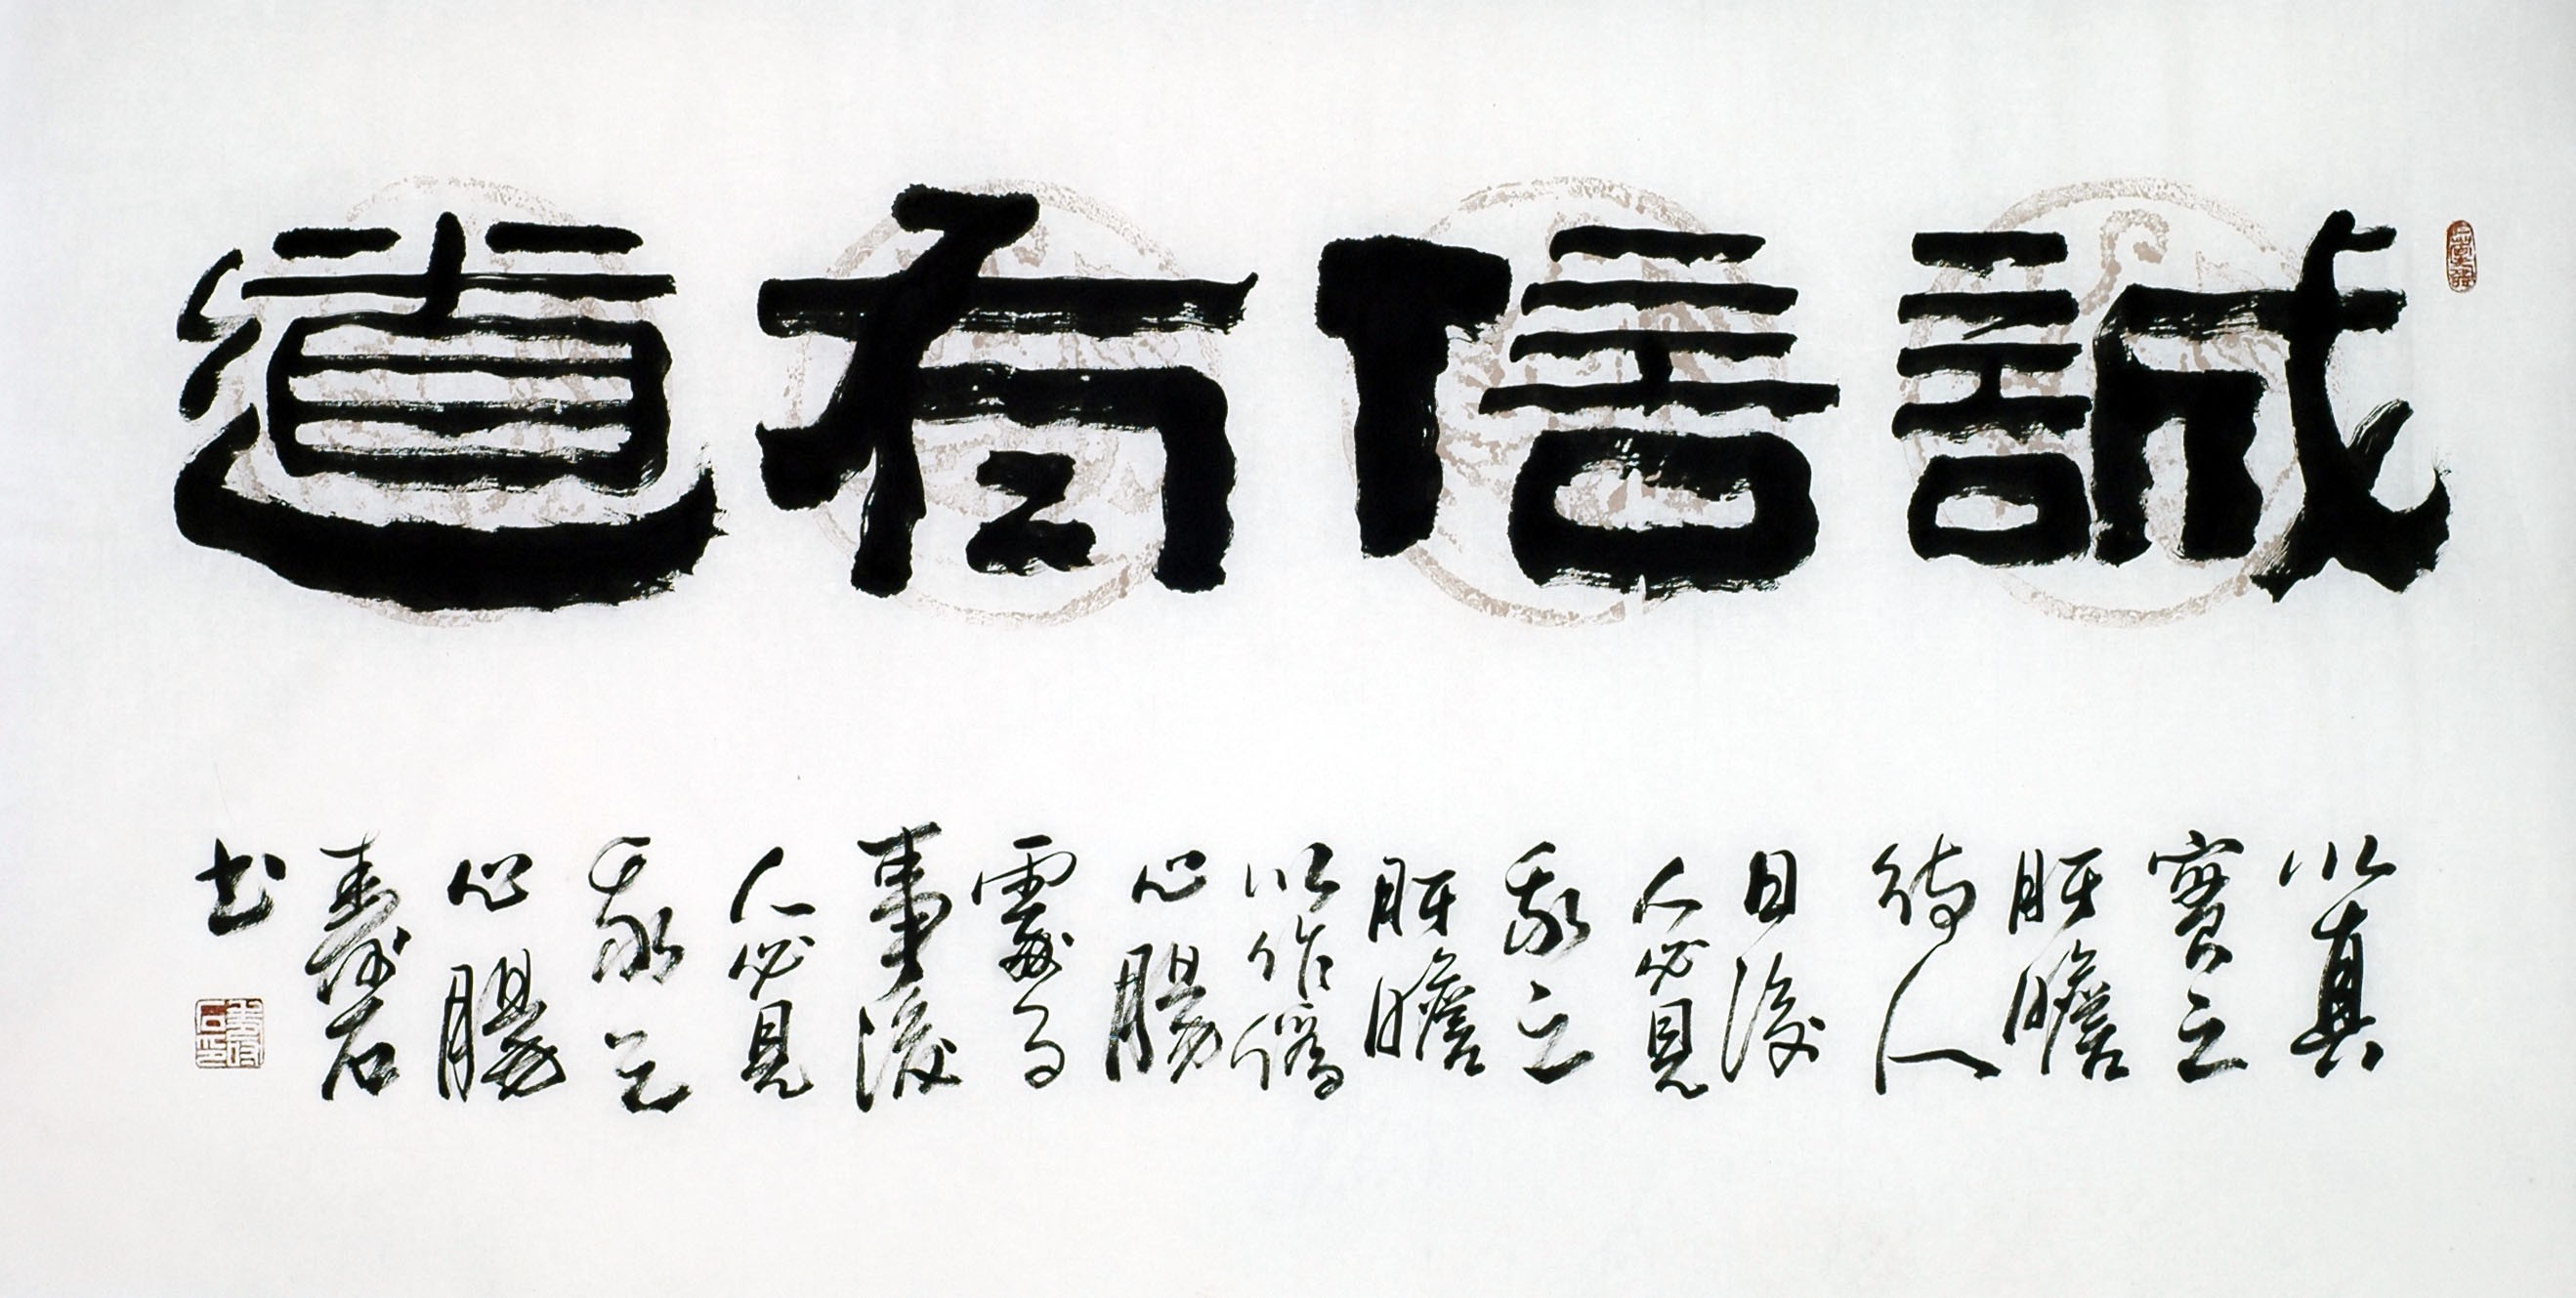 誠信有道
以真
實之
肝膽
待人
日後
人必見
我之
肝膽
以作偽
心腸
處
事後
人必見
我之
心腸
石
书